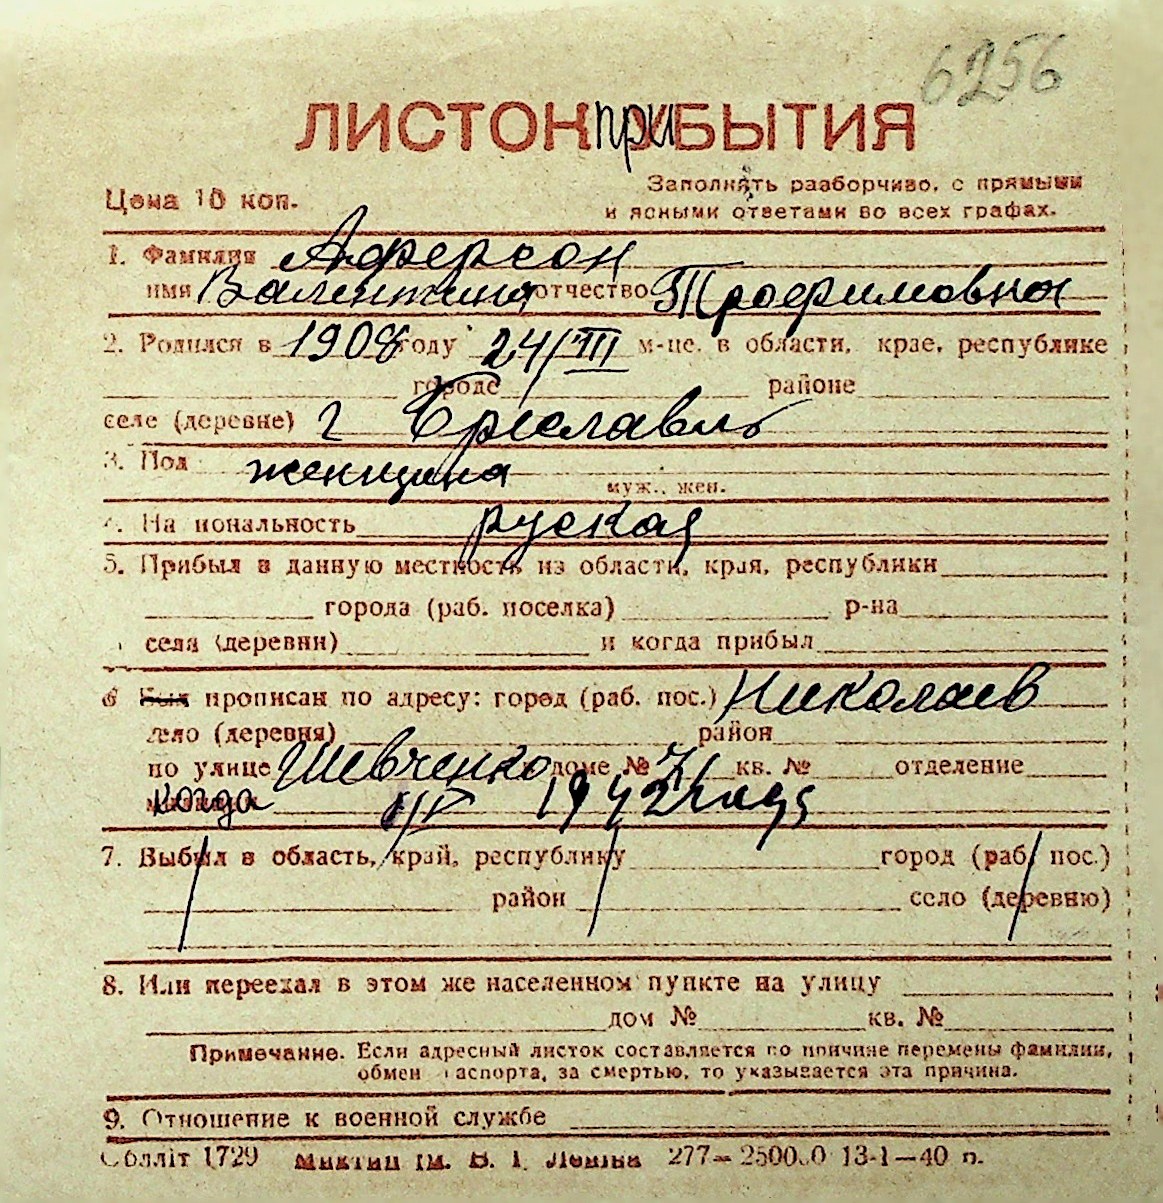 6256
ЛИСТОК ПРИБЫТИЯ
Цена 10 коп.
Заполнять разборчиво, с прямыми
и ясными ответами во всех графах.
1. Фамилия Аферсон
имя Валентина отчество Трофимовна
2. Родился в 1908 году 24/III м-це, в области, крае, республике
городе районе
селе (деревне) г
3. Пол женщина
муж., жен.
4. Национальность руская
5. Прибыл в данную местность из области, края, республики
города (раб. поселка) р-на
села (деревни) и когда прибыл
6 Был прописан по адресу: город (раб. пос.) Николаев
село (деревня) район
по улице Шевченко доме № 71 кв. № отделение
когда 1942 году
7. Выбыл в область, край, республику город (раб. пос.)
район село (деревню)
8. Или переехал в этом же населенном пункте на улицу
дом № кв. №
Примечание. Если адресный листок составляется по причине перемены фамилии,
обмен паспорта, за смертью, то указывается эта причина.
9. Отношение к военной службе
Облліт 1729 ім. В. І. Леніна 277— 13-1—40 п.